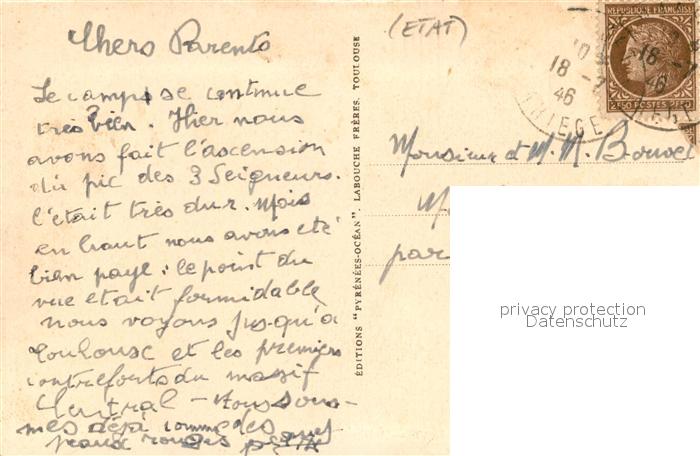 Chers Parents
Le camp se continue
très bien. Hier nous
avons fait l'ascension
du pic des 3 Seigneurs.
C'était très dur. Mais
en haut nous avons été
bien payé : le point du
vue etait formidable
nous voyons jusqu'à
Toulouse et les premiers
contreforts du massif
Central - Nous som-
mes déjà comme des
peaux rouges
EDITIONS "PYRÉNÉES-OCÉAN". LABOUCHE FRÈRES. TOULOUSE
(ETAT)
REPUBLIQUE FRANÇAISE
2F50 POSTES
18 - 7
46
ARIEGE
Monsieur et M. M.
par
privacy protection
Datenschutz